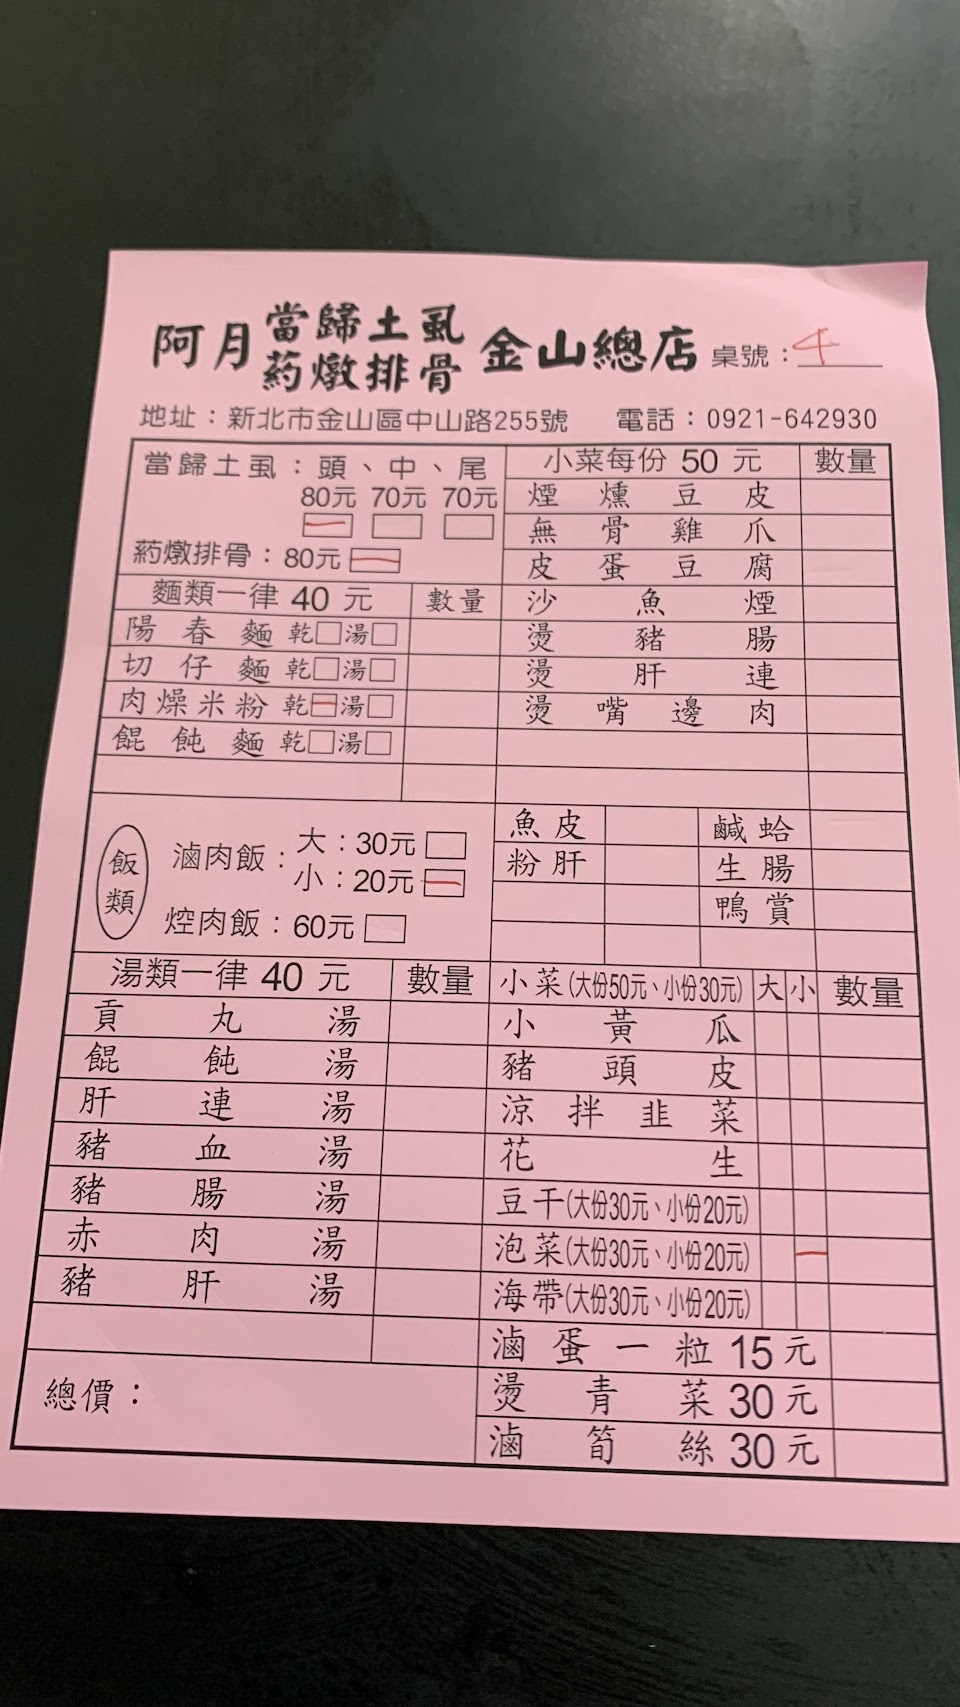 阿月 當歸土虱 葯燉排骨 金山總店 桌號：4
地址：新北市金山區中山路255號 電話：0921-642930
當歸土虱：頭、中、尾
80元 70元 70元
一
葯燉排骨：80元 一
麵類一律 40 元 數量
陽春麵 乾□湯□
切仔麵 乾□湯□
肉燥米粉 乾一湯□
餛飩麵 乾□湯□
飯類
滷肉飯：大：30元 □
小：20元 一
焢肉飯：60元 □
湯類一律 40 元 數量
貢丸湯
餛飩湯
肝連湯
豬血湯
豬腸湯
赤肉湯
豬肝湯
總價：
小菜每份 50 元 數量
煙燻豆皮
無骨雞爪
皮蛋豆腐
沙魚煙
燙豬腸
燙肝連
燙嘴邊肉
魚皮 鹹蛤
粉肝 生腸
鴨賞
小菜(大份50元、小份30元) 大 小 數量
小黃瓜
豬頭皮
涼拌韭菜
花生
豆干(大份30元、小份20元)
泡菜(大份30元、小份20元) 一
海帶(大份30元、小份20元)
滷蛋一粒 15元
燙青菜 30元
滷筍絲 30元